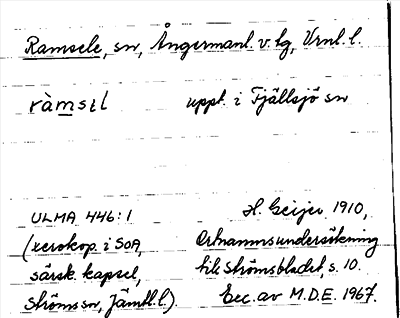 Ramsele, sn, Ångermanl. v. lg, Vrnl. l.
ràmsεl uppt. i Fjällsjö sn
ULMA 446:1 H. Geijer 1910,
(xerokop. i SOA, Ortnamnsundersökning
särsk. kapsel, till Strömsbladet, s. 10.
Ströms sn, Jämtl. l.) Exc. av M.D.E. 1967.